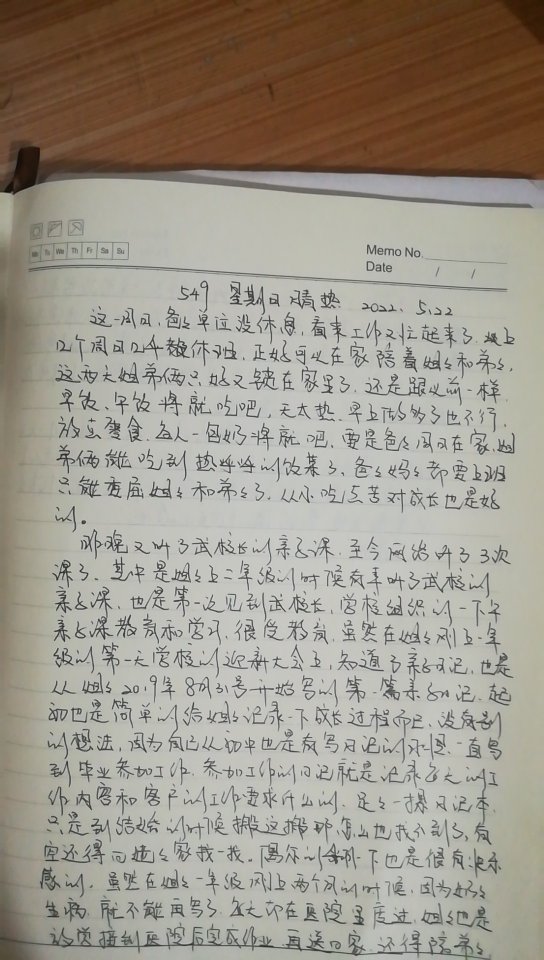 Memo No.
Mo Tu We Th Fr Sa Su
Date / /
549 星期日 晴热 2022.5.22
这一周日,爸爸单位没休息,看来工作又忙起来了,上
2个周日 休班,正好可以在家陪着姐姐和弟弟,
这两天姐弟俩只好又锁在家里了,还是跟以前一样,
早饭、午饭将就吃吧,天太热,早上做多了也不行,
放点零食,每人一包奶将就吧,要是爸爸周日在家,姐
弟俩能吃到热呼呼的饭菜了,爸爸妈妈都要上班
只能委屈姐姐和弟弟了,从小吃点苦对成长也是好
的。
昨晚又听了武校长的亲子课,至今网络听了3次
课了,其中是姐姐上二年级的时候有幸听了武校的
亲子课,也是第一次见到武校长,学校组织的一下午
亲子课教育和学习,很受教育,虽然在姐姐刚上一年
级的第一天学校的迎新大会上,知道了亲子日记,也是
从姐姐2019年8月31号开始写的第一篇亲子日记,起
初也是简单的给姐姐记录一下成长过程而已,没有别
的想法,因为自己从初中也是有写日记的 ,一直写
到毕业参加工作,参加工作的日记就是记录每天的工
作内容和客户的工作要求什么的,足足一摞日记本,
只是到结婚的时候搬这搬那,怎么也找不到了,有
空还得回 家找一找,偶尔的 一下也是很有快乐
感的,虽然在姐姐一年级刚上两个月的时候,因为妈妈
生病,就不能再写了,每天都在医院里度过,姐姐也是
放学接到医院后完成作业,再送回家,还得陪弟弟